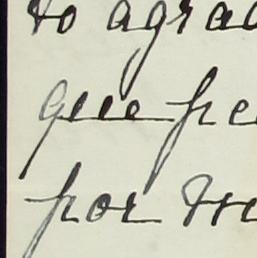 to agra
que pe
por tre